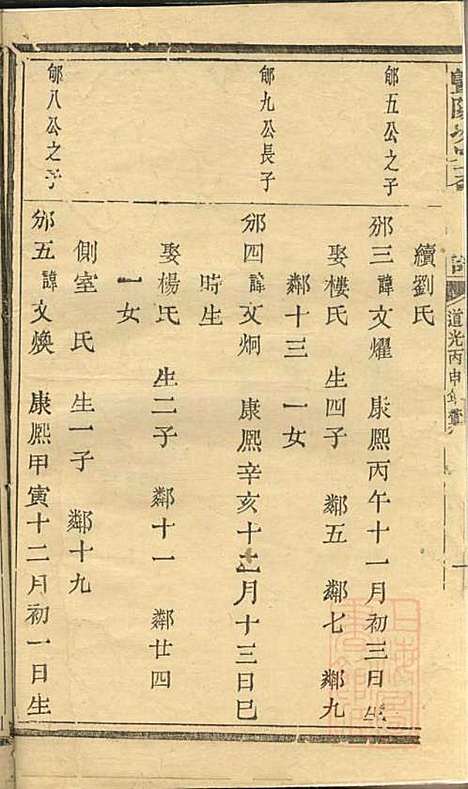 道光丙申年
續劉氏
郇五公之子
邠三 諱文燿 康熙丙午十一月初三日生
娶樓氏 生四子 鄰五 鄰七 鄰九
鄰十三 一女
郇九公長子
邠四 諱文炯 康熙辛亥十二月十三日巳
時生
娶楊氏 生二子 鄰十一 鄰廿四
一女
側室 氏 生一子 鄰十九
郇八公之子
邠五 諱文煥 康熙甲寅十二月初一日生